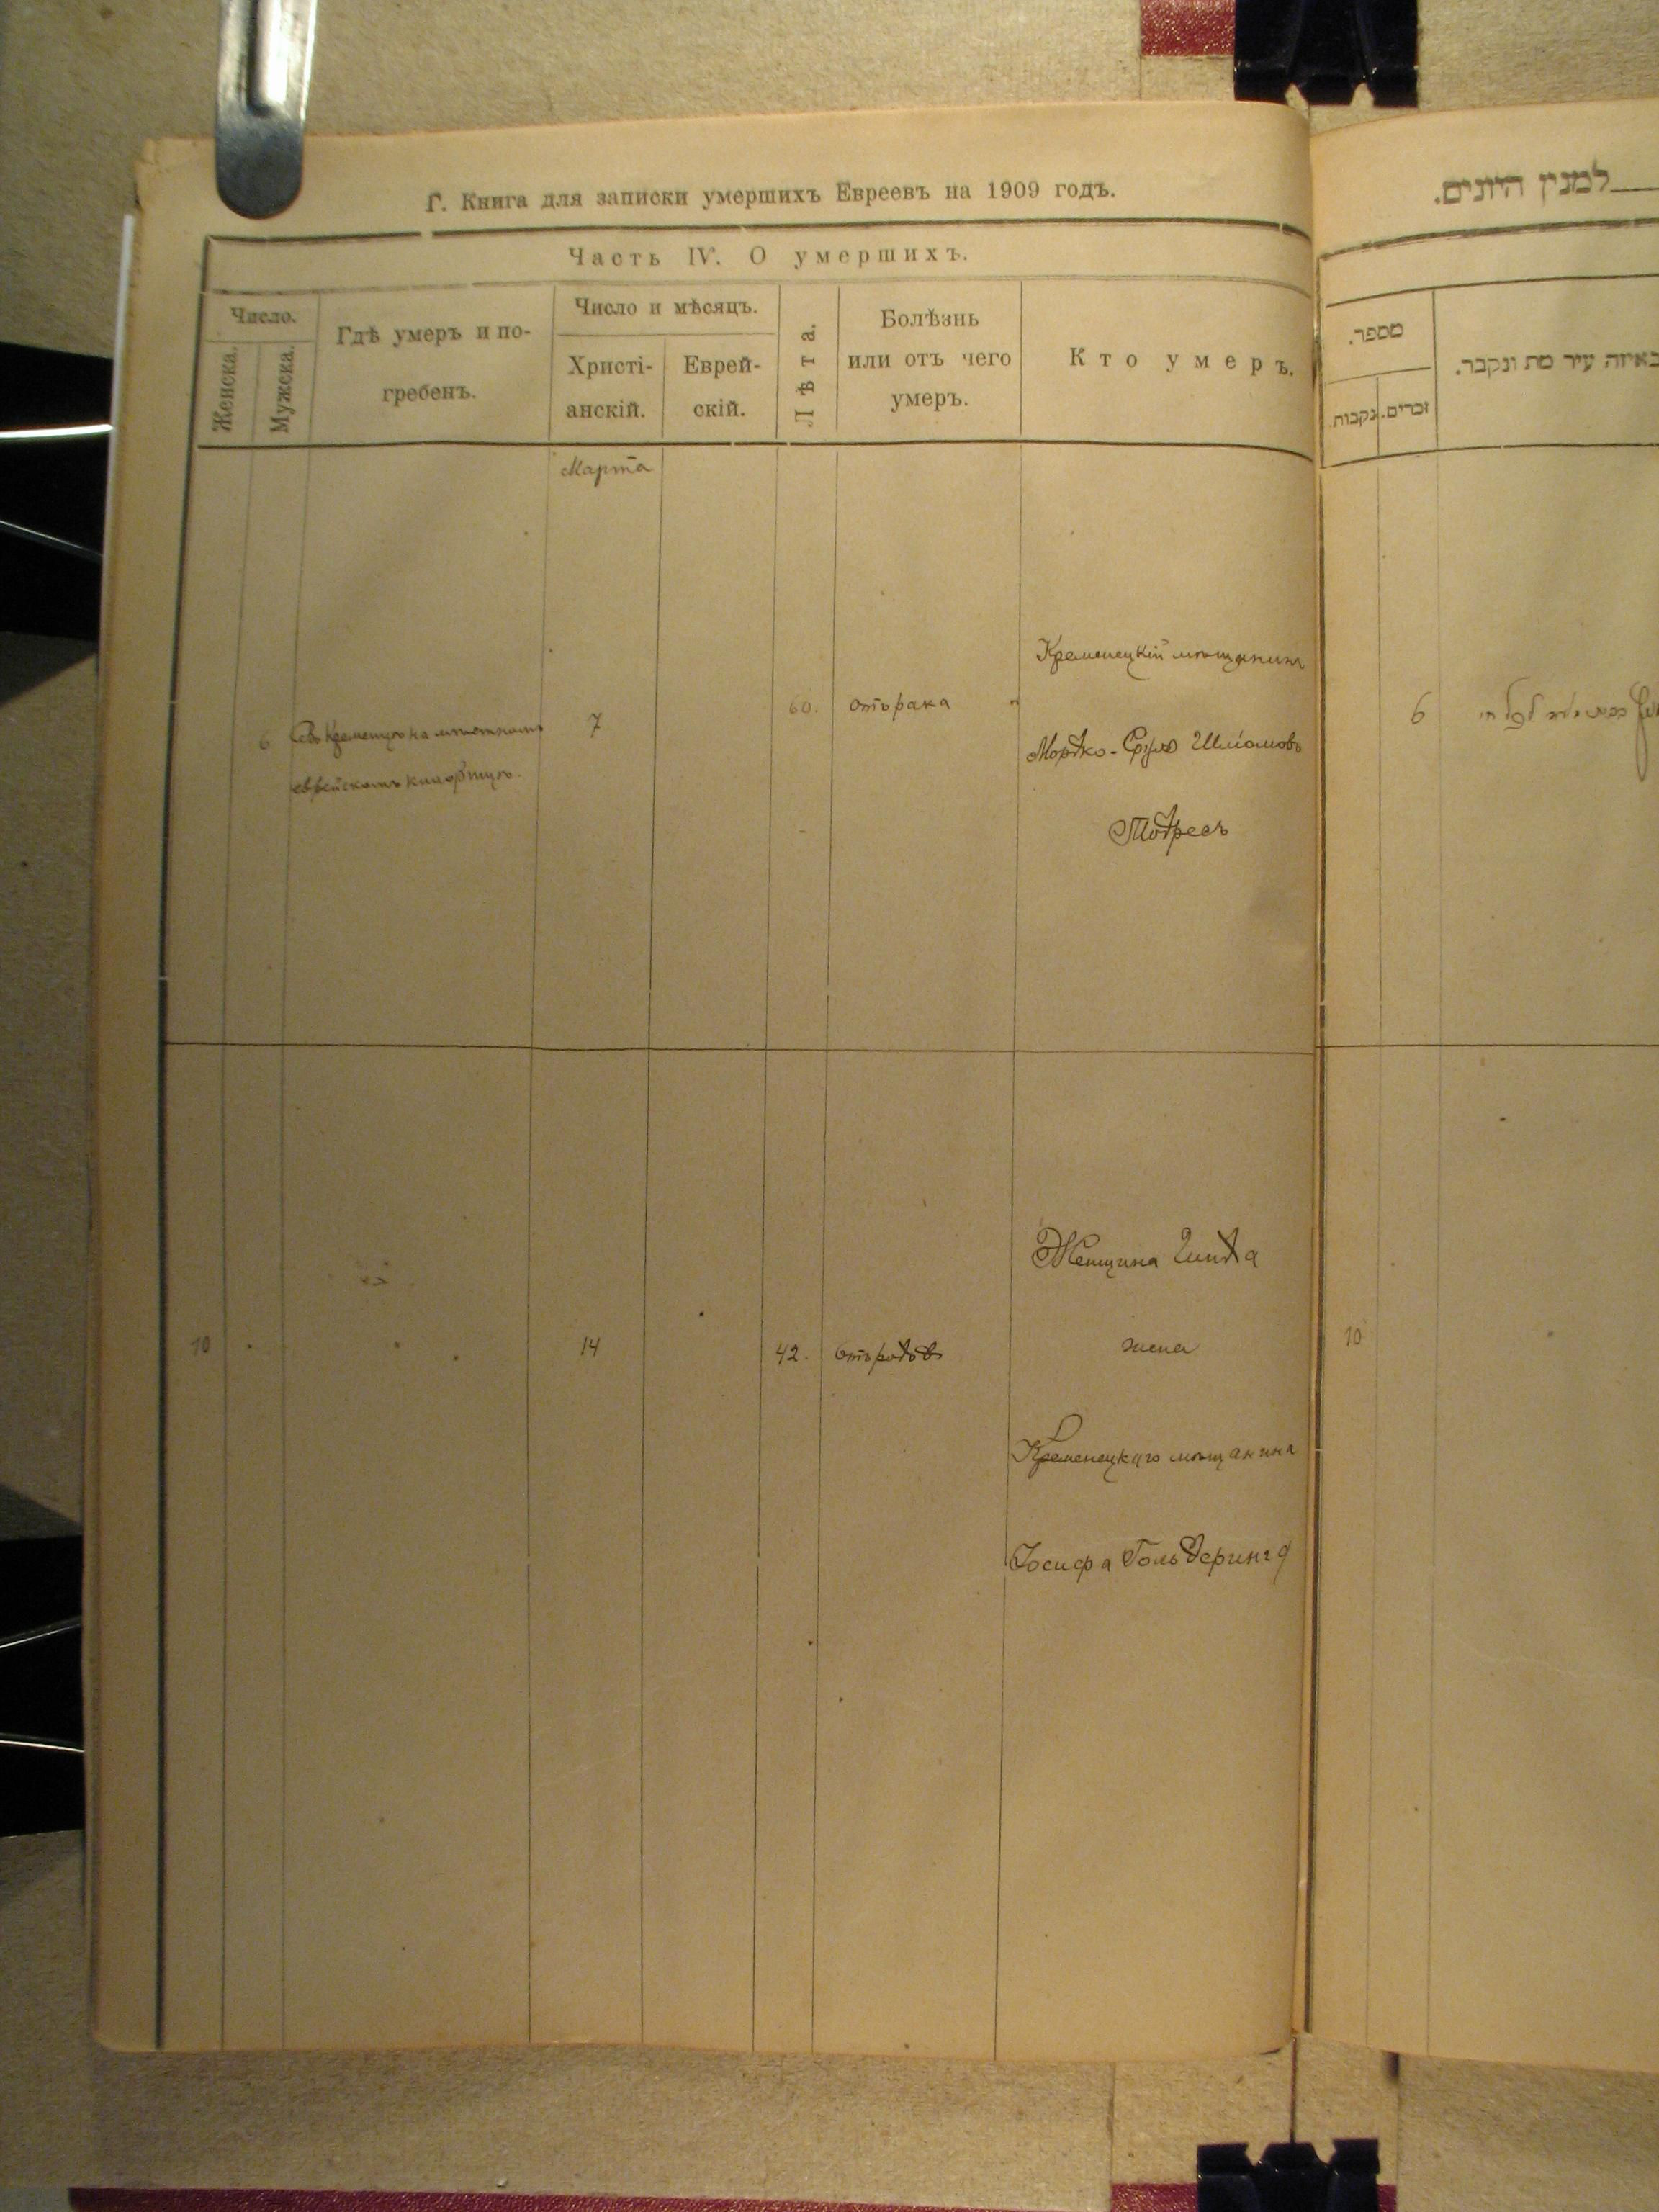 Г. Книга для записки умершихъ Евреевъ на 1909 годъ.
Часть IV. О умершихъ.
Число.
Женска.
Мужска.
Гдѣ умеръ и по-
гребенъ.
Число и мѣсяцъ.
Христі-
анскій.
Еврей-
скій.
Лѣта.
Болѣзнь
или отъ чего
умеръ.
Кто умеръ.
Марта
6
Въ Кременцѣ на мѣстномъ
еврейскомъ кладбищѣ.
7
60.
отъ рака
Кременецкій мѣщанинъ
Мордко-Сруль Шліомовъ
10
14
42.
отъ родовъ
Женщина
жена
Кременецкаго мѣщанина
Іосифа Гольдеринга
למנין היונים.
מספר.
נקבות.
זכרים.
באיזה עיר מת ונקבר.
6
10